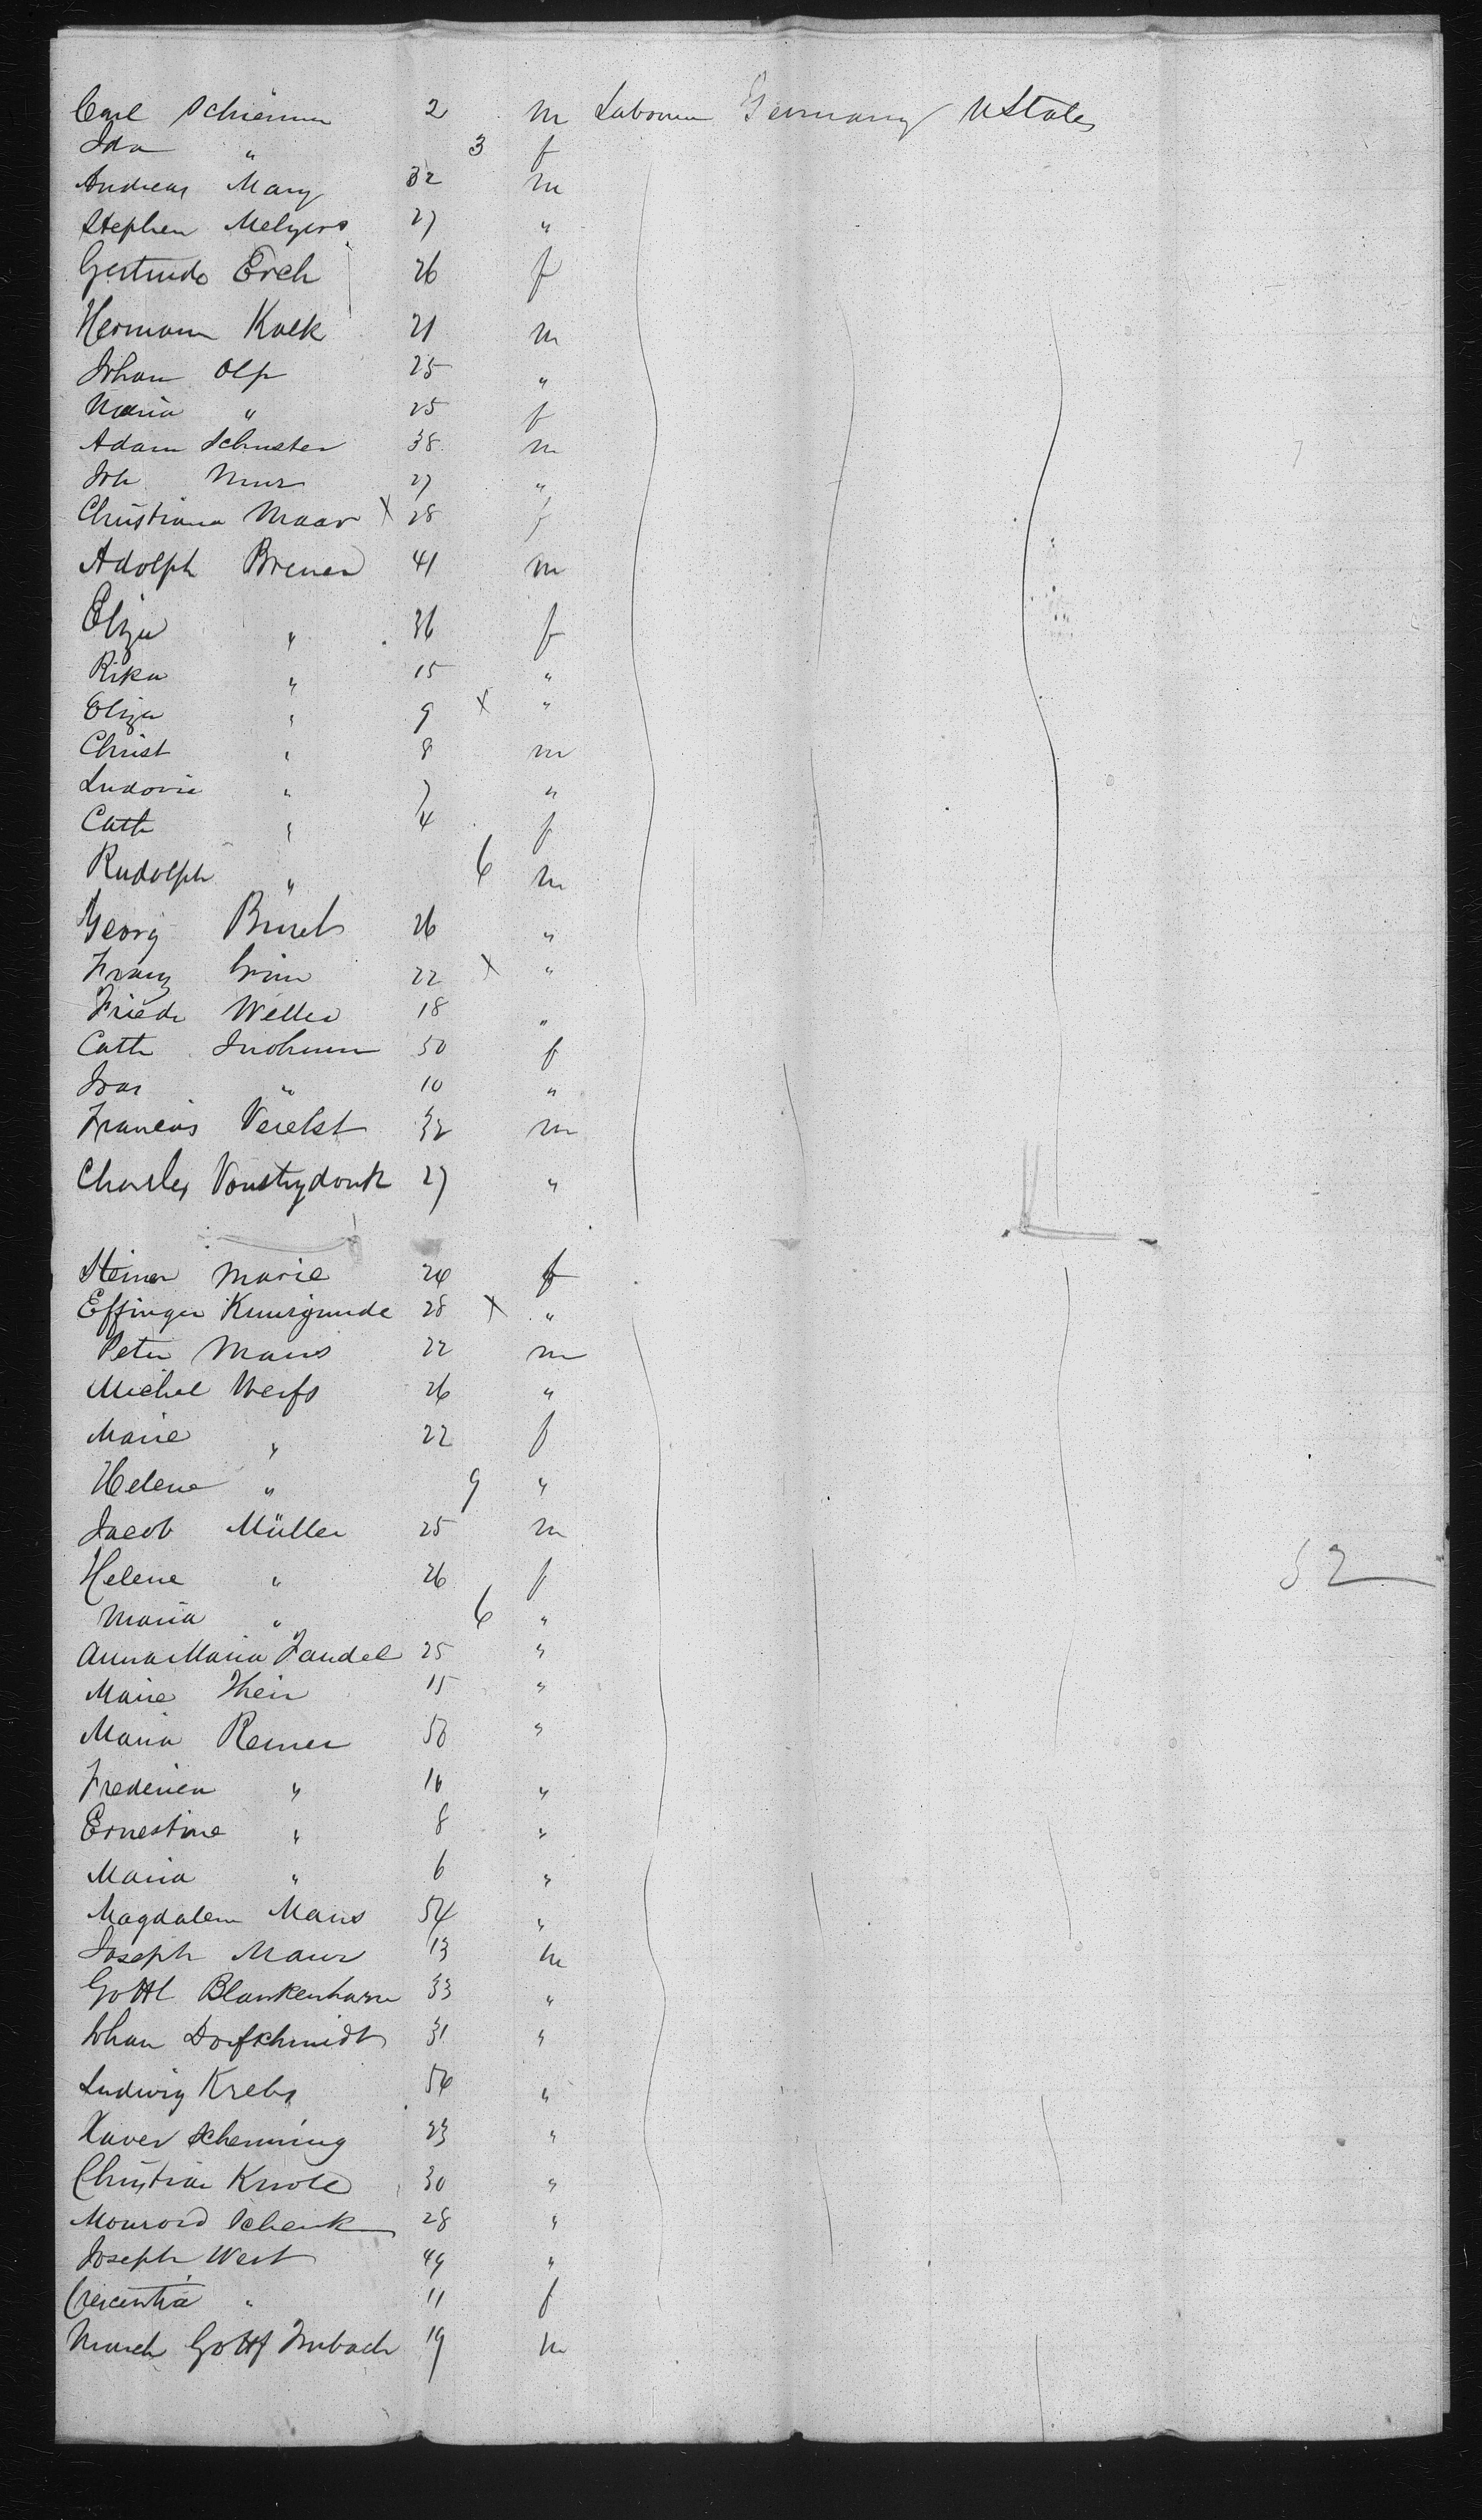 Carl Schiemm 2 m Labourer Germany UStates
Ida " 3 f
Andreas Mary 32 m
Stephen Melyers 27 "
Gertrude Erch 26 f
Hermann Kalk 21 m
Johan Olp 25 "
Maria " 25 f
Adam Schuster 38 m
Joh 27 "
Christiana Maar X 28 f
Adolph Brener 41 m
Eliza " 36 f
Rika " 15 "
Eliza " 9 X "
Christ " 8 m
Ludovic " 7 "
Cath " 4 f
Rudolph " 6 m
Georg 26 "
Franz 22 X "
Friedr Weller 18 "
Cath 50 f
" 10 "
Francois Verelst 32 m
Charles Vonstrydonk 27 "
Steiner Marie 24 f
Effinger Kunigunde 28 X "
Peter Maus 22 m
Michel Werfs 26 "
Marie " 22 f
Helene " 9 "
Jacob Müller 25 m
Helene " 26 f
52
Maria " 6 "
Anna Maria Jandel 25 "
Marie Thein 15 "
Maria Remer 50 "
Frederica " 16 "
Ernestine " 8 "
Maria " 6 "
Magdalem Maus 54 "
Joseph Maur 13 m
Gottl Blankenharn 33 "
Johan Dorfschmidt 31 "
Ludwig Krebs 54 "
Xaver Schenning 23 "
Christian Knole 30 "
Schenk 28 "
Joseph West 49 "
Crescentia " 11 f
Gottf Imbach 19 m